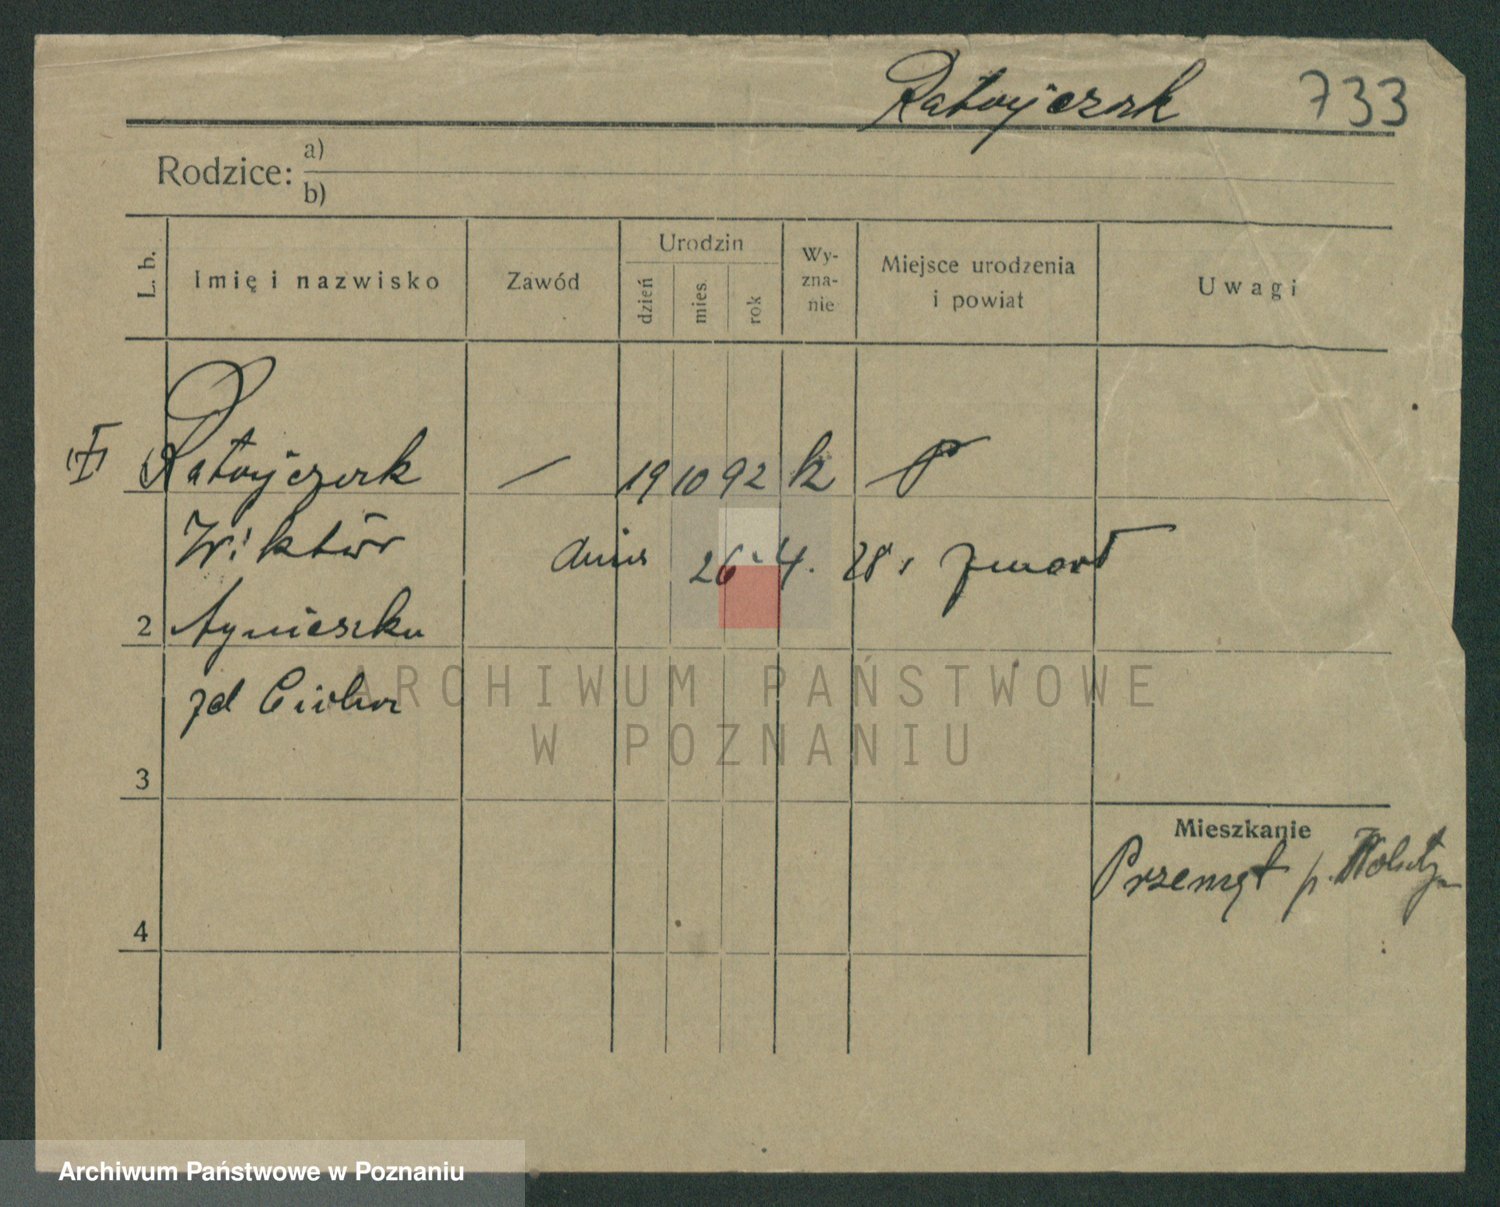 Ratajczak 733
Rodzice: a)
b)
L. b. Imię i nazwisko Zawód Urodzin dzień mies rok Wy-zna-nie Miejsce urodzenia i powiat Uwagi
Ratajczak — 19 10 92 k P
Wiktor dnia 26.4. 28 r zmarł
2 Agnieszka
zd
3
Mieszkanie
Przemęt p.
4
ARCHIWUM PAŃSTWOWE
W POZNANIU
Archiwum Państwowe w Poznaniu